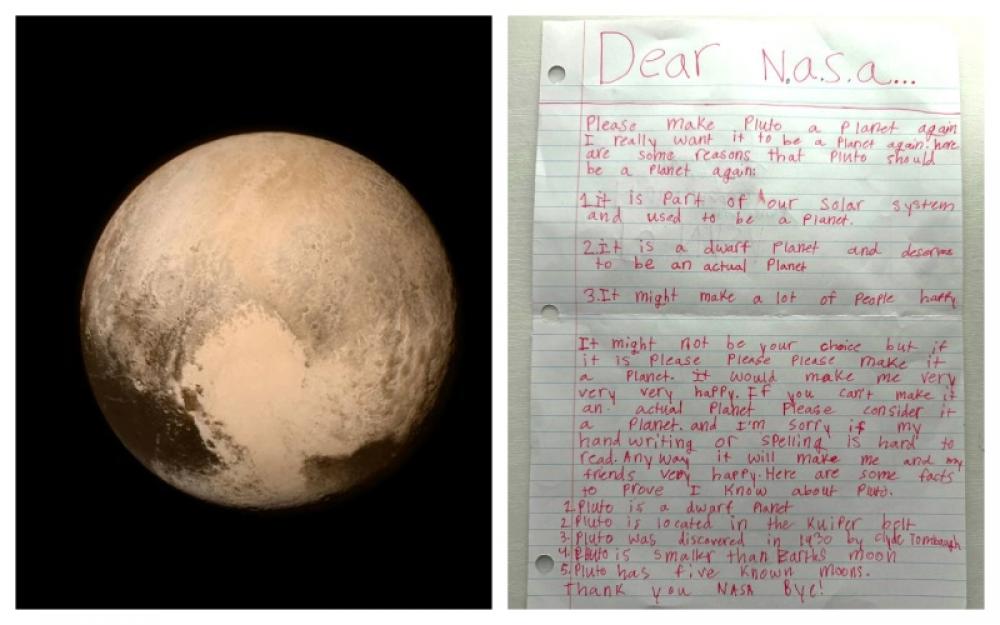 Dear N.a.s.a...
Please make Pluto a Planet again
I really want it to be a Planet again. here
are some reasons that Pluto should
be a Planet again:
1.it is Part of our solar system
and used to be a Planet.
2.It is a dwarf Planet and deserves
to be an actual Planet
3.It might make a lot of People happy
It might not be your choice but if
it is Please Please Please make it
a Planet. It would make me very
very very happy. If you can't make it
an actual Planet Please consider it
a Planet. and I'm sorry if my
hand writing or spelling is hard to
read. Any way it will make me and my
friends very happy. Here are some facts
to Prove I know about Pluto.
1. Pluto is a dwarf Planet
2. Pluto is located in the Kuiper belt
3. Pluto was discovered in 1930 by Clyde Tombaugh
4. Pluto is smaller than Earths moon
5. Pluto has five known moons.
Thank you NASA Bye!